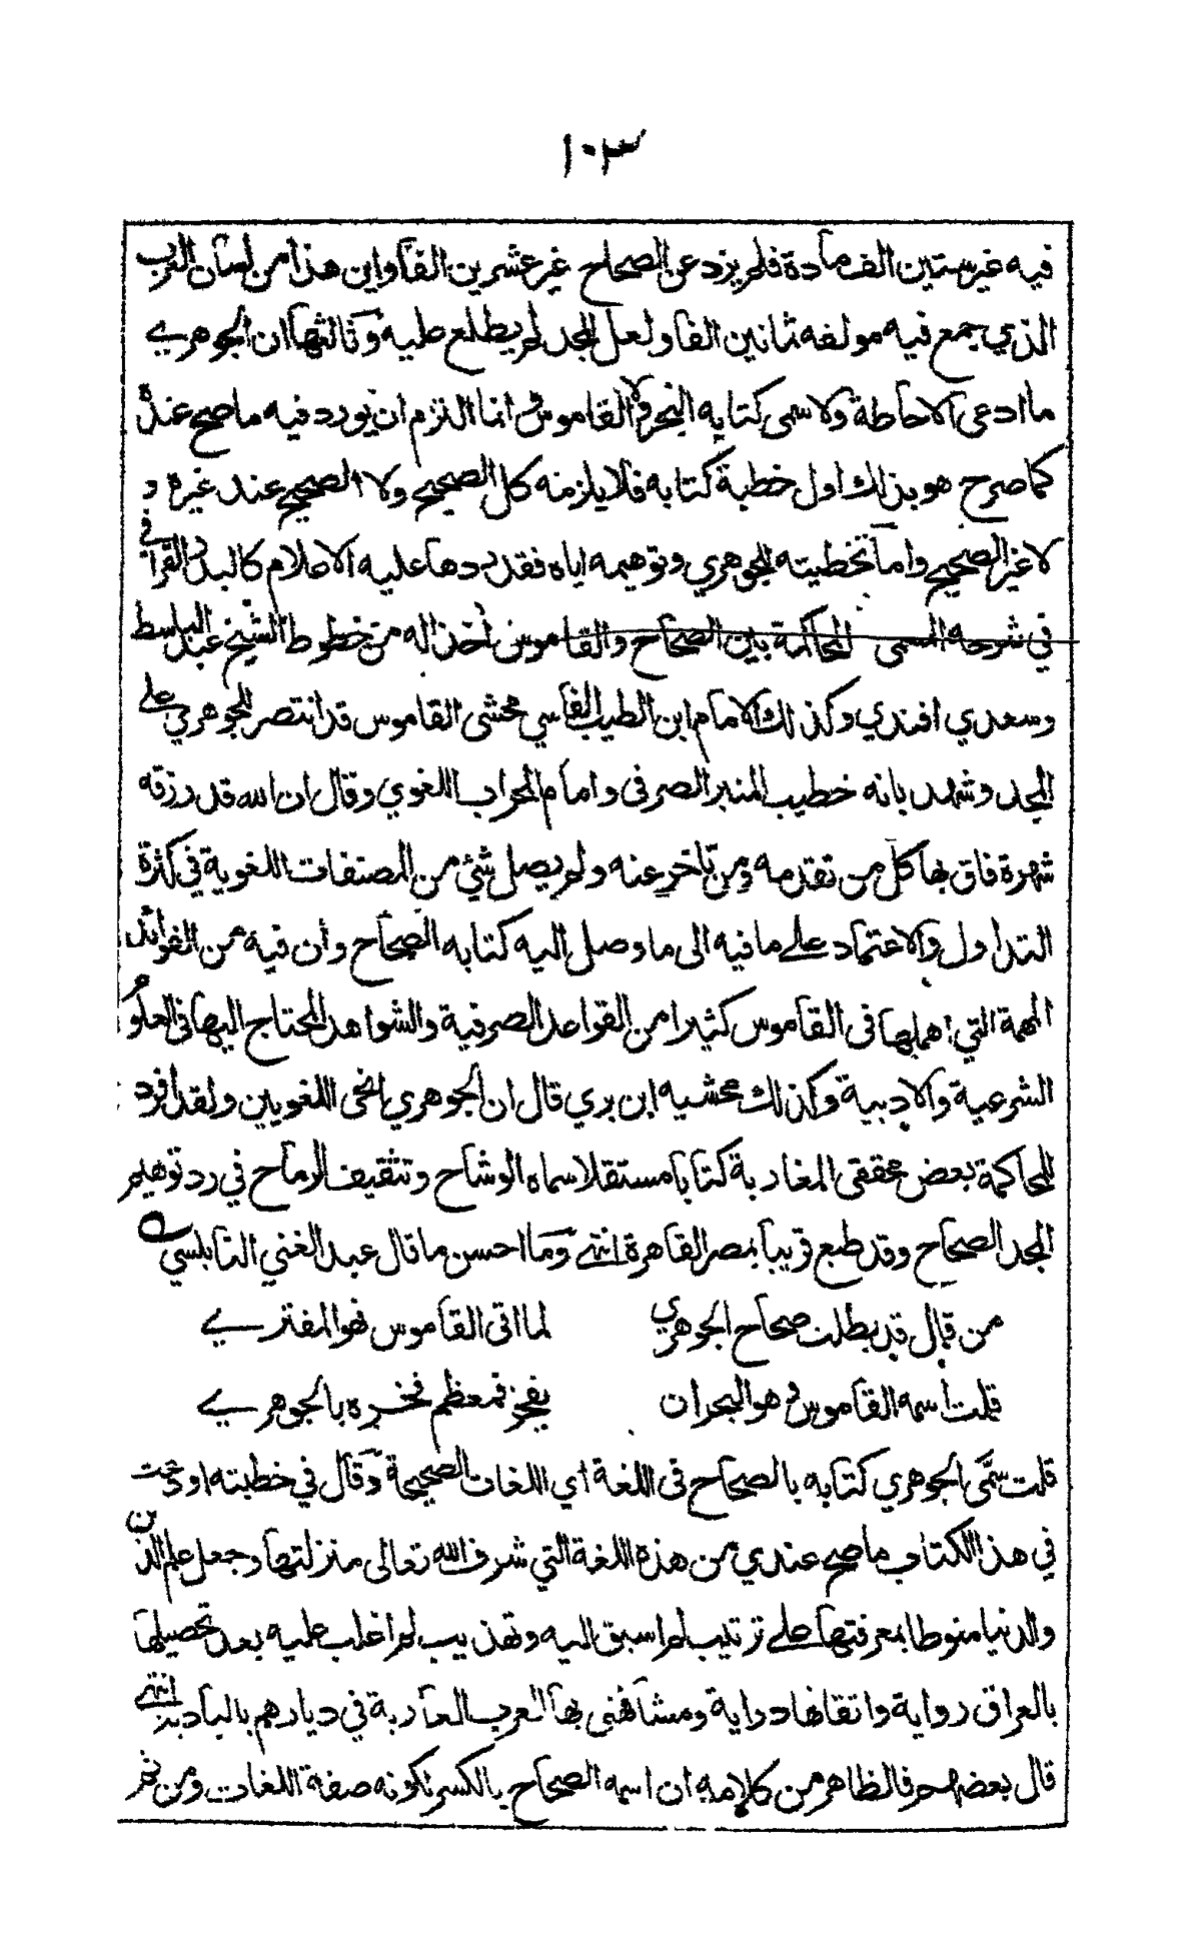 ١٠٣
فيه غير ستين الف مادة فلم يزد عن الصحاح غير عشرين الفا واين هذا من لسان العرب
الذي جمع فيه مولفه ثمانين الفا ولعل المجد لم يطلع عليه وثالثها ان الجوهري
ما ادعى الاحاطة ولا سمى كتابه البحر ولا القاموس وانما التزم ان يورد فيه ما صح عنده
كما صرح هو بذلك اول خطبة كتابه فلا يلزمه كل الصحيح ولا الصحيح عند غيره و
لا غير الصحيح واما تخطيته للجوهري وتوهيمه اياه فقد ردها عليه الاعلام كالبدر القرافي
في شرحه المسمى المحاكمة بين الصحاح والقاموس اخذ اله من خطوط الشيخ عبد الباسط
وسعدي افندي وكذلك الامام ابن الطيب الفاسي محشى القاموس قد انتصر للجوهري على
المجد وشهد بانه خطيب المنبر الصرفى وامام المحراب اللغوي وقال ان الله قد رزقه
شهرة فاق بها كل من تقدمه ومن تاخر عنه ولم يصل شئ من المصنفات اللغوية في كثرة
التداول والاعتماد على ما فيه الى ما وصل اليه كتابه الصحاح وأن فيه من الفوائد
المهمة التي اهملها فى القاموس كثيرا من القواعد الصرفية والشواهد المحتاج اليها فى العلوم
الشرعية والادبية وكذلك محشيه ابن بري قال ان الجوهري انحى اللغويين ولقد افرد
للمحاكمة بعض محققى المغاربة كتابا مستقلا سماه الوشاح وتثقيف الرماح في رد توهيم
المجد الصحاح وقد طبع قريبا بمصر القاهرة انتهى وما احسن ما قال عبد الغني النابلسي ه
من قال قد بطلت صحاح الجوهري لما اتى القاموس فهو المفترى
قلت اسمه القاموس وهو البحر ان يفخر فمعظم فخره بالجوهري
قلت سمّى الجوهري كتابه بالصحاح فى اللغة اي اللغات الصحيحة وقال في خطبته اودعت
في هذا الكتاب ما صح عندي من هذه اللغة التي شرف الله تعالى منزلتها وجعل علم الدين
والدنيا منوطا بمعرفتها على ترتيب لم اسبق اليه وتهذيب لم اغلب عليه بعد تحصيلها
بالعراق رواية واتقانها دراية ومشافهتى بها العرب العاربة في ديارهم بالبادية انتهى
قال بعضهم فالظاهر من كلامه ان اسمه الصحاح بالكسر لكونه صفة اللغات ومن ثم